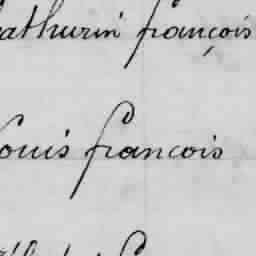 athurin françois
ouis francois